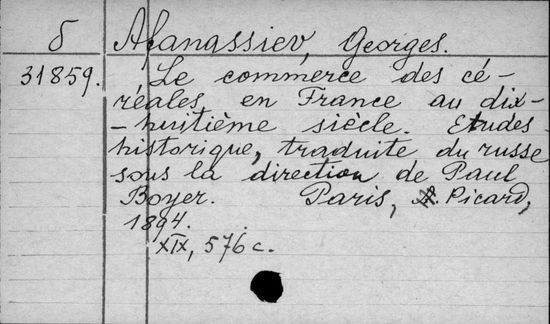 б Afanassiev, Georges.
31859. Le commerce des cé-
réales en France au dix-
-huitième siècle. Etudes
historique, traduite du russe
sous la direction de Paul
Boyer. Paris, Picard,
1894.
XIX, 576 с.